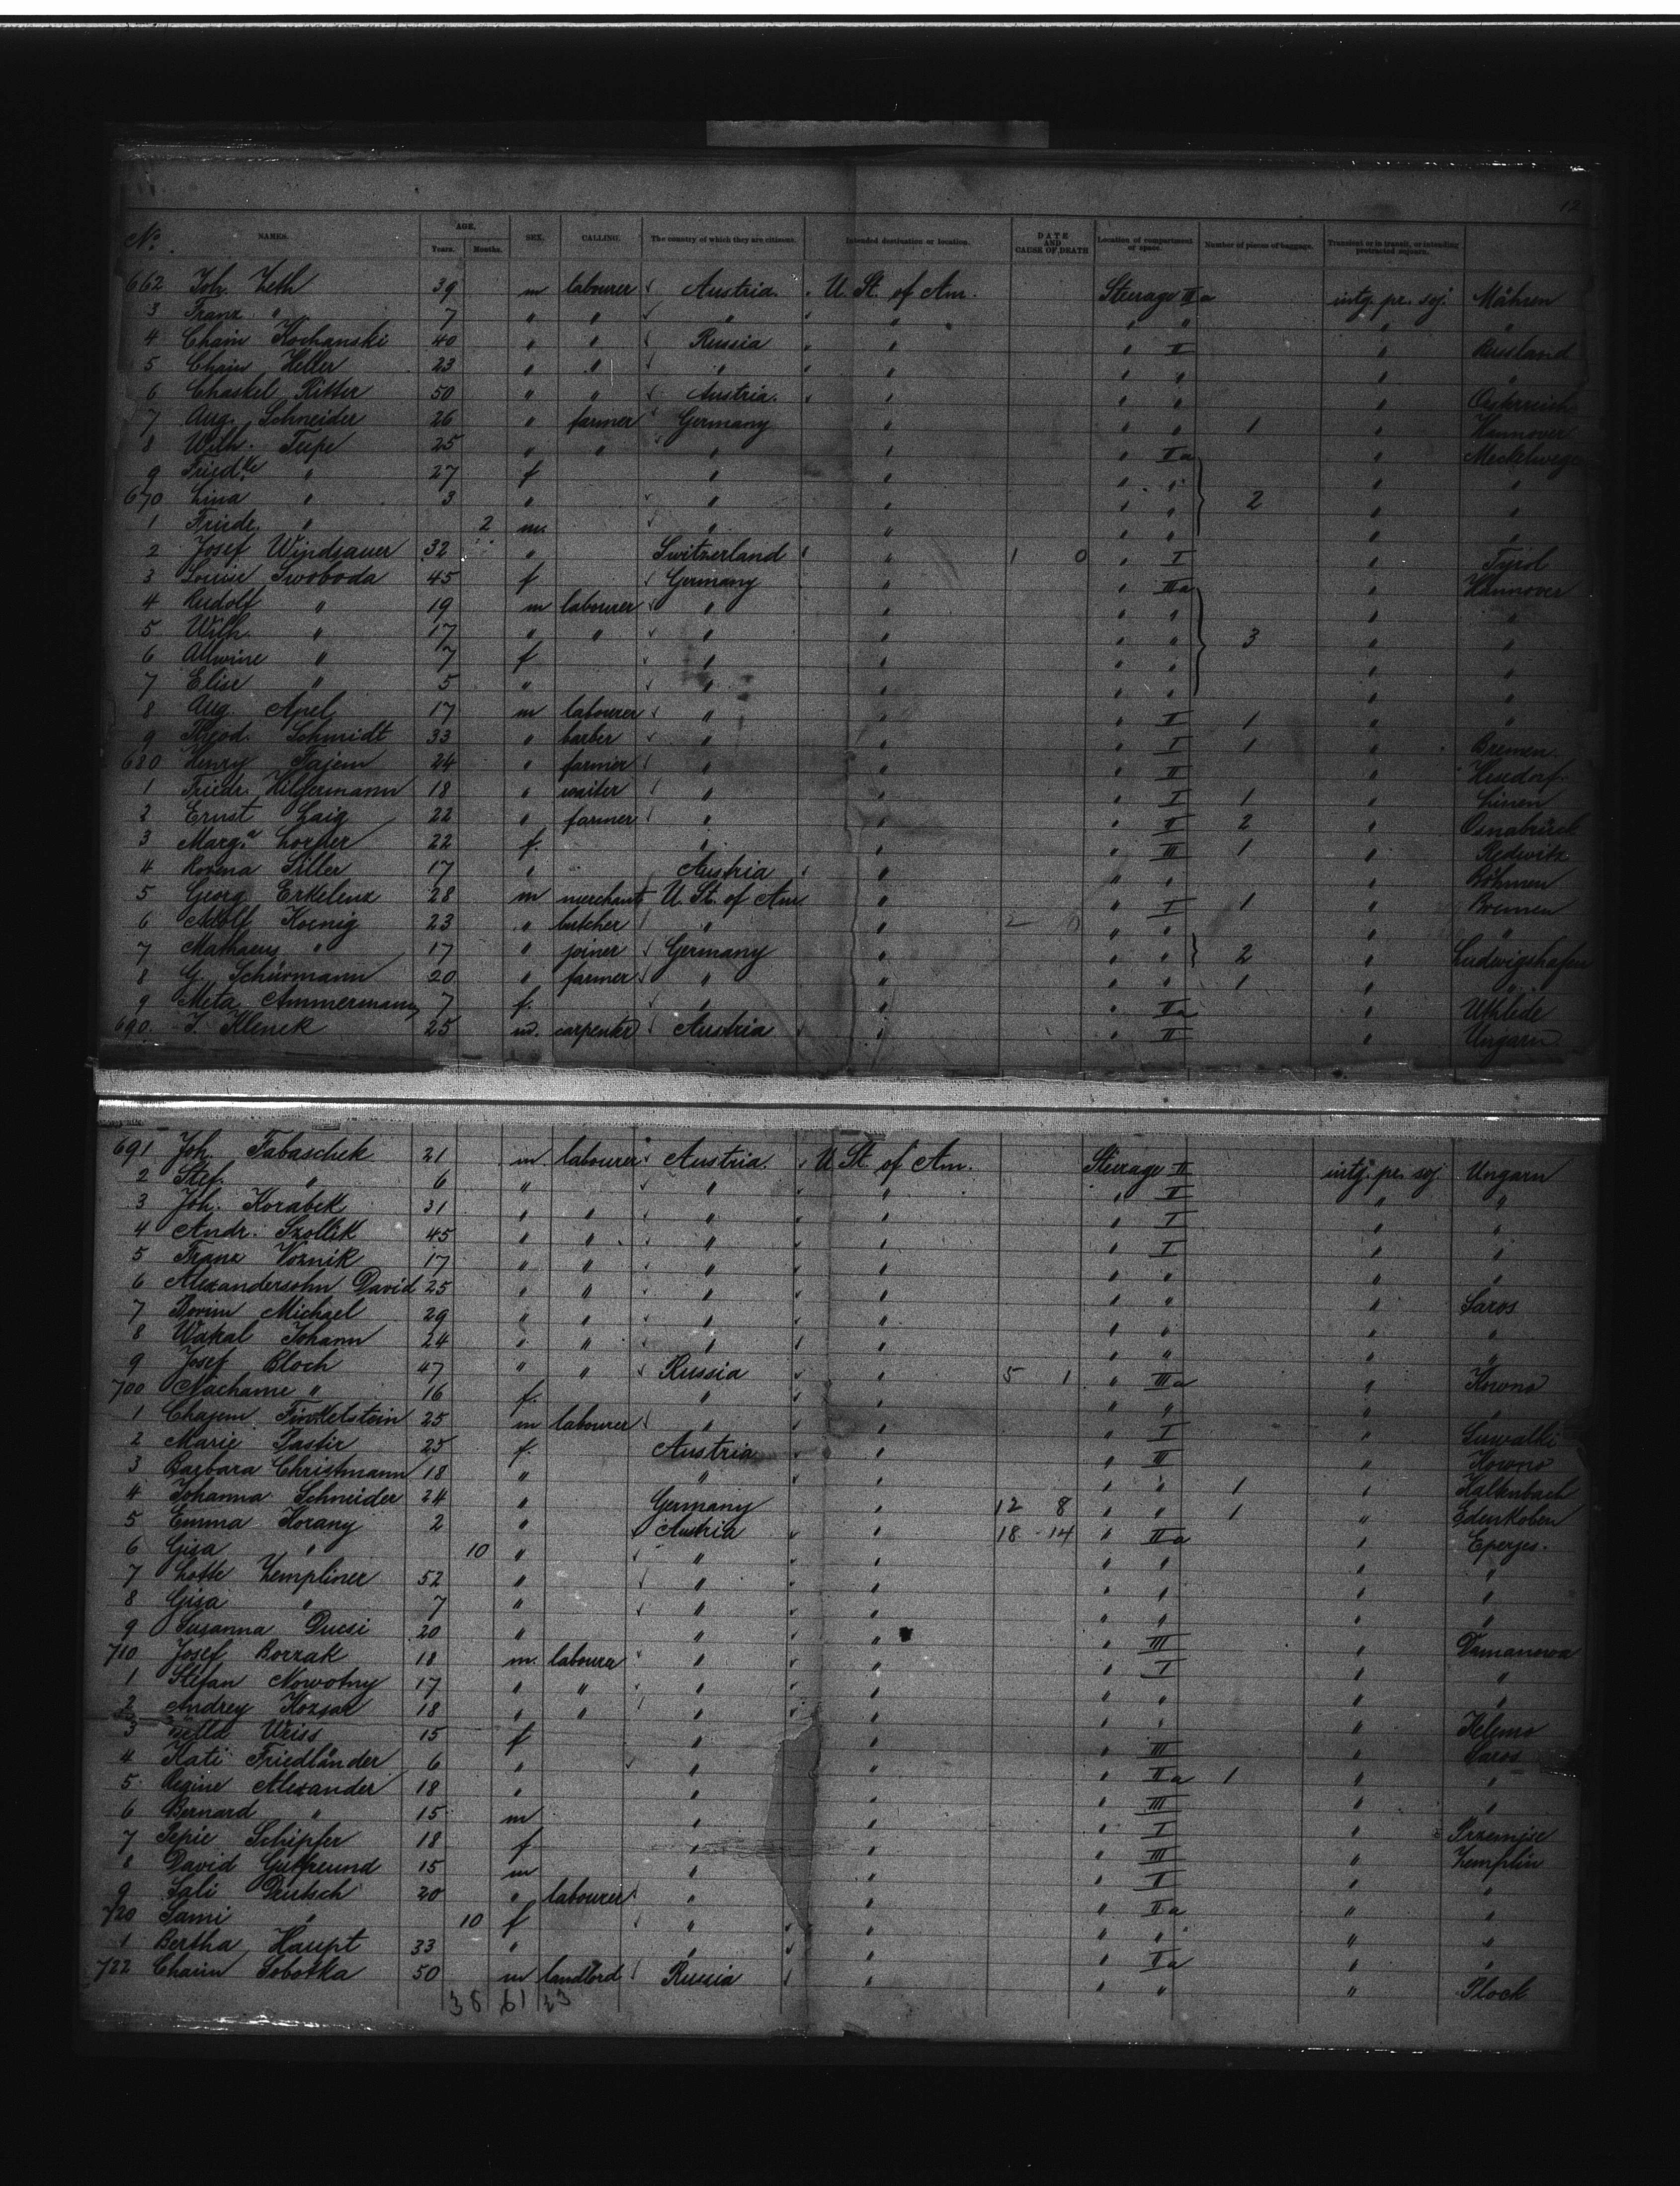 12
No. NAMES. AGE. Years. Months. SEX. CALLING. The country of which they are citizens. Intended destination or location. DATE AND CAUSE OF DEATH Location of compartment or space. Number of pieces of baggage. Transient or in transit, or intending protracted sojourn.
662 Joh. Zeth 39 m labourer Austria. U. St. of Am. Steerage IIIa intg. pr. soj. Mähren
3 Franz " 7 " " " " " " " "
4 Chaim Kochanski 40 " " Russia " " II " Russland
5 Chaim Heller 23 " " " " " " " "
6 Chaskel Ritter 50 " " Austria. " " " " Österreich
7 Aug. Schneider 26 " farmer Germany " " " 1 " Hannover
8 Wilh. Tiepe 25 " " " " " IIa "
9 Friedke " 27 f " " " " " "
670 Lina " 3 " " " " " 2 " "
1 Friedr. " 2 m. " " " " " "
2 Josef Windsauer 32 " Switzerland " 1 0 " I " Tyrol
3 Louise Swoboda 45 f Germany " " IIIa " Hannover
4 Rudolf " 19 m labourer " " " " " "
5 Wilh. " 17 " " " " " " 3 " "
6 Allwine " 7 f " " " " " "
7 Elise " 5 " " " " " " "
8 Aug. Apel 17 m labourer " " " II 1 " "
9 Theod. Schmidt 33 " barber " " " I 1 " Bremen
680 Henry Tajem 24 " farmer " " " II " Hesedorf
1 Friedr. Hilgermann 18 " waiter " " " I 1 " Linen
2 Ernst Laig 22 " farmer " " " II 2 " Osnabrück
3 Marga. Lorper 22 f. " " " III 1 " Redwitz
4 Rosena Siller 17 " Austria " " " " Böhmen
5 Georg Erkelenz 28 m merchant U. St. of Am. " " I 1 " Bremen
6 Adolf Koenig 23 " butcher " " 2 0 " " " "
7 Mathaeus " 17 " joiner Germany " " " 2 " Ludwigshafen
8 G. Schürmann 20 " farmer " " " " 1 " "
9 Meta Ammermann 7 f. " " " IIa " Uthlede
690. J. Klenek 25 m. carpenter Austria " " II " Ungarn
691 Joh. Tabaschek 21 m. labourer Austria. U. St. of Am. Steerage II intg. pr. soj. Ungarn
2 Stef. " 6 " " " " II " "
3 Joh. Korabek 31 " " " " " I " "
4 Andr. Szollik 45 " " " " " I " "
5 Franz Voznik 17 " " " " " " " "
6 Alexandersohn David 25 " " " " " " " Saros
7 Rovini Michael 29 " " " " " " " "
8 Wakal Johann 24 " " " " " " " "
9 Josef Bloch 47 " " Russia " 5 1 " IIIa " Kowno
700 Nachame " 16 f. " " " " " "
1 Chajem Finkelstein 25 m labourer " " " I " Suwalki
2 Marie Pastir 25 f. Austria " " III " Kowno
3 Barbara Christmann 18 " " " " " 1 " Kalkenbach
4 Johanna Schneider 24 " Germany " 12 8 " " 1 " Edenkoben
5 Emma Korany 2 " Austria " 18 14 " IIa " Eperjes.
6 Gisa " 10 " " " " " " "
7 Lotte Zempliner 52 " " " " " " "
8 Gisa " 7 " " " " " " "
9 Susanna Ducsi 20 " " " " III " Damanowa
710 Josef Borzak 18 m. labourer " " " I " "
1 Stefan Nowotny 17 " " " " " " " "
2 Andrey Kozsar 18 " " " " " " " Kelemo
3 Weiss 15 f " " " III " Saros
4 Kati Friedländer 6 " " " " IIa 1 " "
5 Regine Alexander 18 " " " " III " "
6 Bernard " 15 m " " " I "
7 Pepie Schipfer 18 f " " " III " Zemplin
8 David Gutfreund 15 m " " " I " "
9 Sali Deutsch 20 " labourer " " " IIa " "
720 Sami " 10 f " " " " " "
1 Bertha Haupt 33 " " " " IIa " "
722 Chaim Sobotka 50 m landlord Russia " " " " Plock
38 61 23